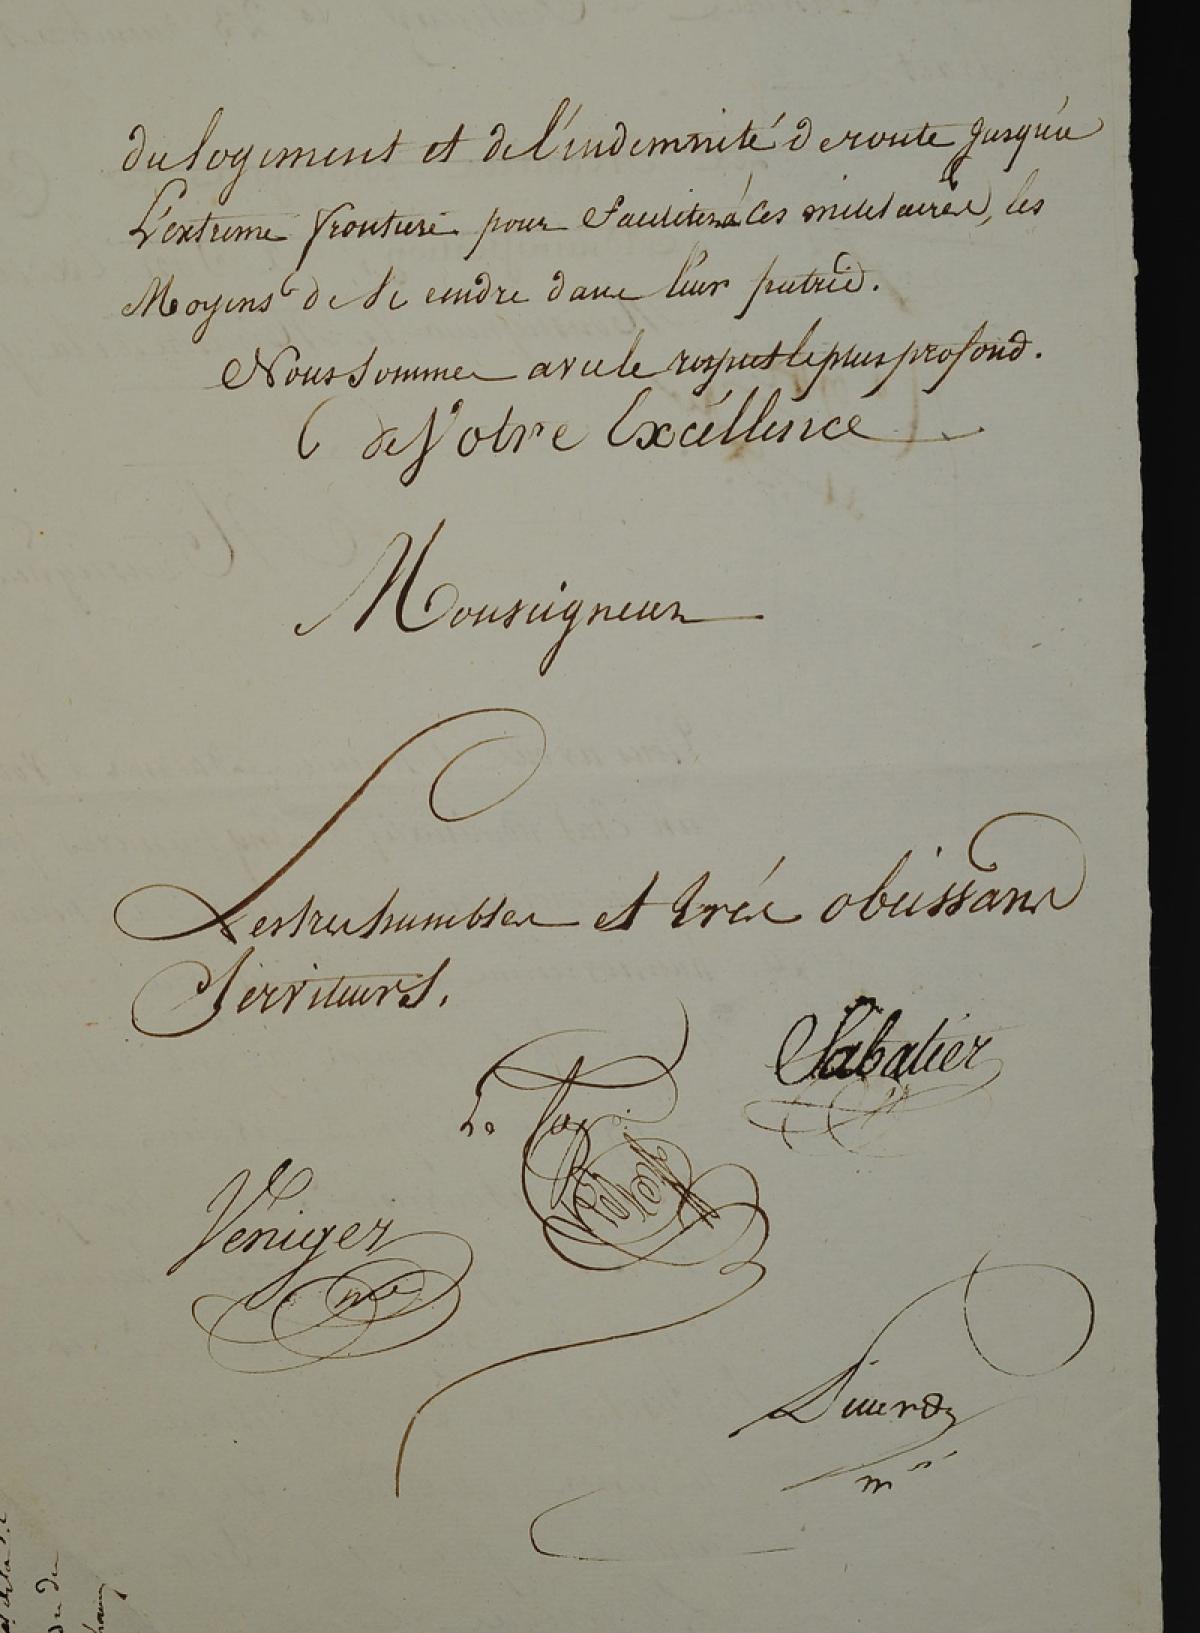 du logement et de l'indemnité de route jusqu'à
L'extreme frontiere pour faciliter à ces militaires, les
Moyens de se rendre dans leur patrie.
Nous sommes avec le respect le plus profond.
de Votre Excéllence
Monseigneur
Les tres humbles et trés obeissans
Serviteurs.
Sabatier
Veniger